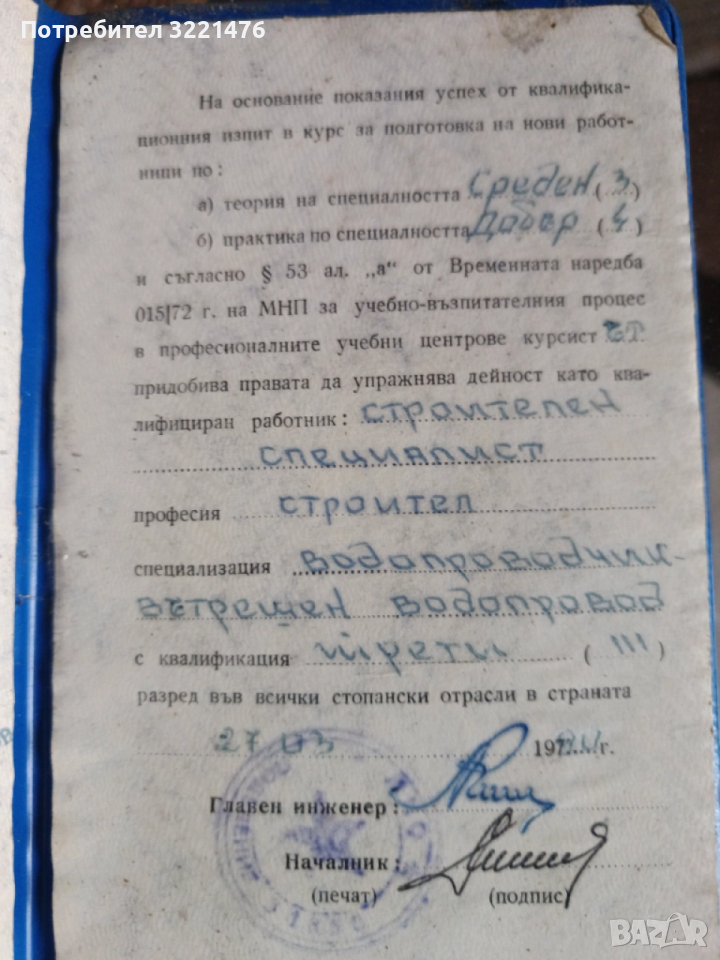 Потребител 3221476
На основание показания успех от квалифика-
ционния изпит в курс за подготовка на нови работ-
ници по:
а) теория на специалността Среден (3)
б) практика по специалността Добър (4)
и съгласно § 53 ал. „а“ от Временната наредба
015/72 г. на МНП за учебно-възпитателния процес
в професионалните учебни центрове курсист
придобива правата да упражнява дейност като ква-
лифициран работник: строителен
специалист
професия строител
специализация водопроводчик-
вътрешен водопровод
с квалификация трети (III)
разред във всички стопански отрасли в страната
27 03 г.
Главен инженер:
Началник:
(печат) (подпис)
BAZAR